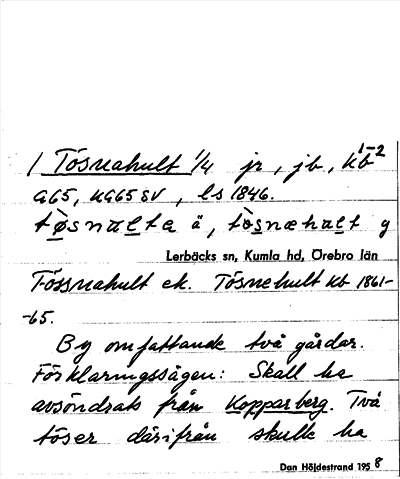 / Tösnahult 1/4 jr, jb, kb 1-2
G65, HG65 SV, ls 1846.
tø̀snalta ä, tø̀snæhalt y
Lerbäcks sn, Kumla hd, Örebro län
Tössnahult ek. Tösnehult kb 1861-
-65.
By omfattande två gårdar.
Förklaringssägen: Skall ha
avsöndrats från Kopparberg. Två
töser därifrån skulle ha
Dan Höjdestrand 1958